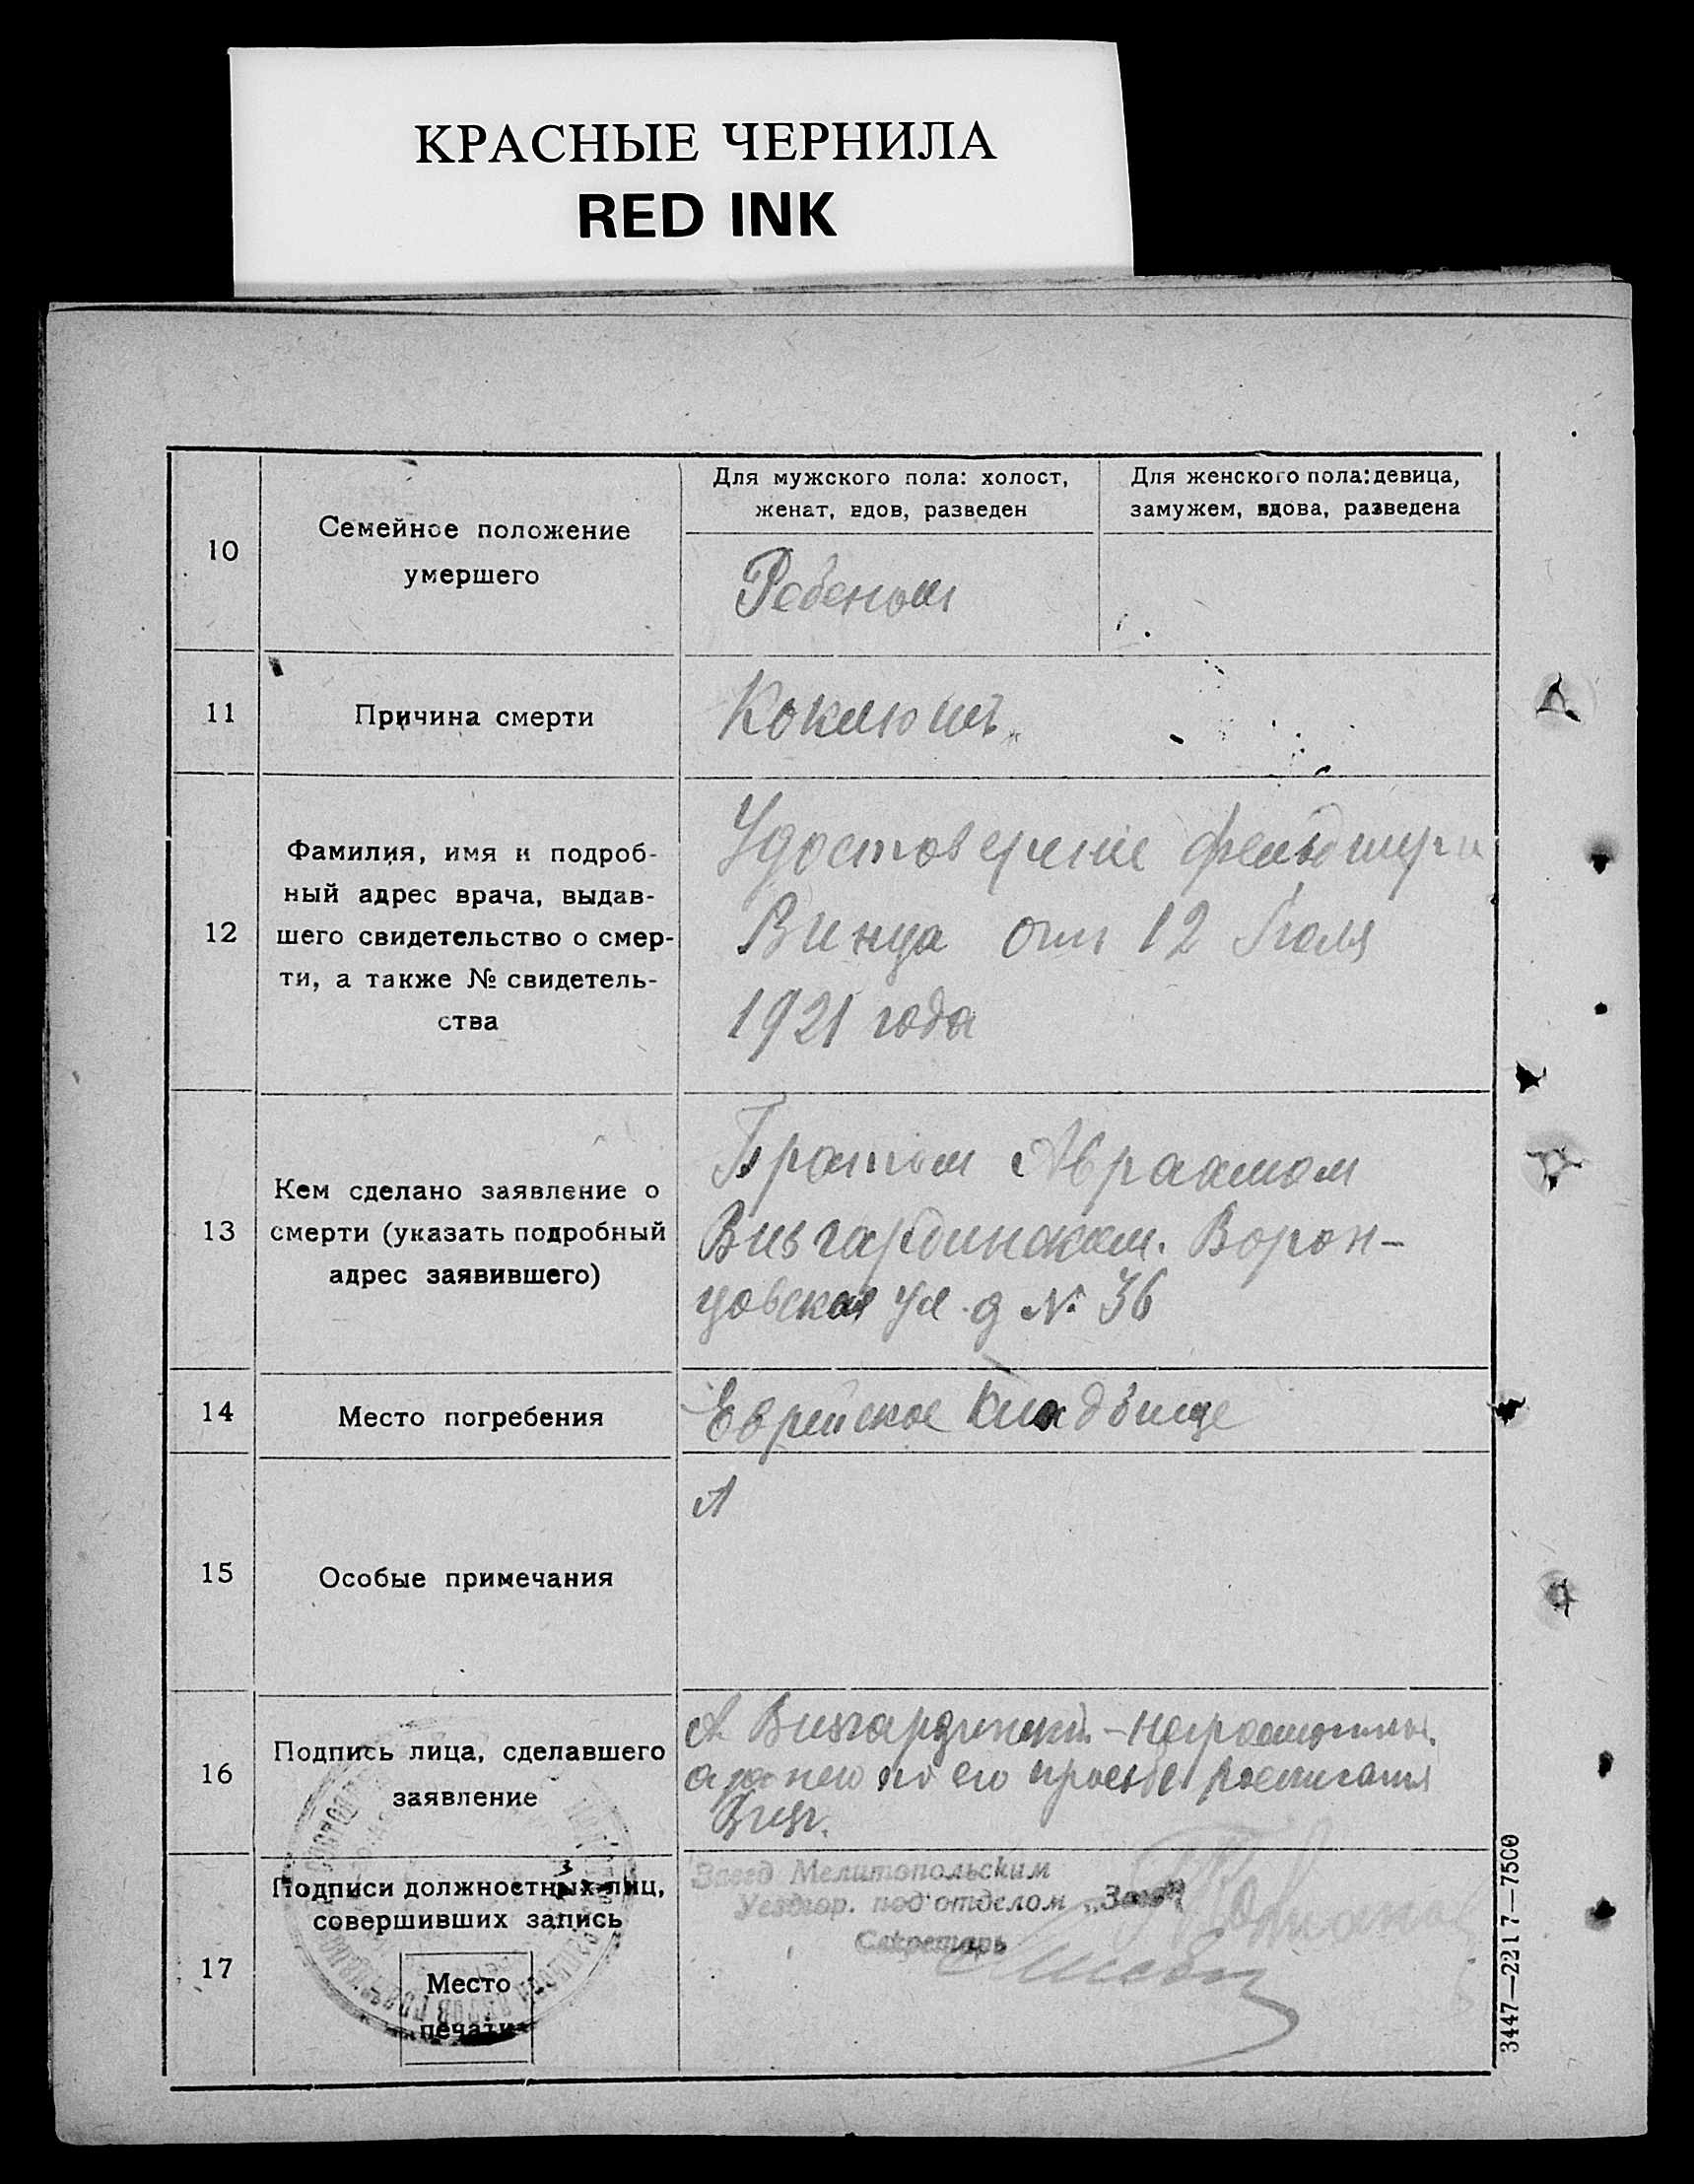 КРАСНЫЕ ЧЕРНИЛА
RED INK
10
Семейное положение
умершего
Для мужского пола: холост,
женат, вдов, разведен
Для женского пола: девица,
замужем, вдова, разведена
Ребеном
11
Причина смерти
Коклюшъ.
12
Фамилия, имя и подроб-
ный адрес врача, выдав-
шего свидетельство о смер-
ти, а также № свидетель-
ства
Удостоверение фельдшера
Винца от 12 Июля
1921 года
13
Кем сделано заявление о
смерти (указать подробный
адрес заявившего)
Братом Авраамом
Вишгардинским. Ворон-
цовская ул. д № 36
14
Место погребения
Еврейское кладбище
15
Особые примечания
А
16
Подпись лица, сделавшего
заявление
А
по его просьбе
17
Подписи должностных лиц,
совершивших запись
Место
печати
Завед Мелитопольским
Уездгор. подотделом „Загс“
Секретарь
3447—2217—7500